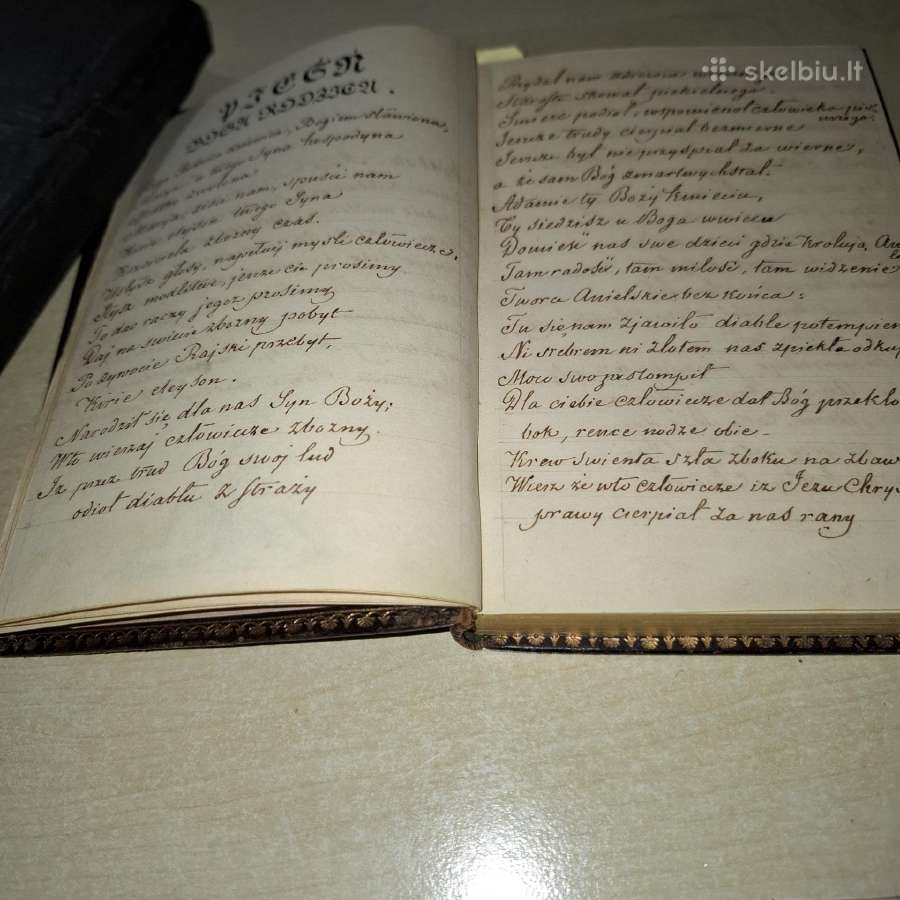 PIEŚŃ
BOGA RODZICU.
Boga Rodzica Bogiem sławiena,
u twego Syna hospodyna
Matko zwolena
Maryja, zisci nam, spuści nam
Kirie elejson twego Syna
zbożny czas.
Usłysz głosy, napełnij mysli człowiecze,
Słysz modlitwe, jenze cie prosimy
To dać raczy jegoz prosimy
Daj na swiecie zbozny pobyt
Po zywocie Rajski przebyt,
Kirie eleyson.
Narodził się dla nas Syn Boży;
W to wierzaj człowiecze zbozny.
Iz przez trud Bóg swój lud
odioł diabłu z strazy
Przydał nam zdrowia
Starostę skował piekielnego.
Śmierc podioł, wspomienoł człowieka pier
wszego.
Jencze trudy cierpiał bezmierne
Jencze był nie przyspiał za wierne,
a że sam Bóg zmartwychstał.
Adamie ty Boży kmieciu,
Ty siedzisz u Boga wwiecu
Domieść nas swe dzieci gdzie Krolują An
Tam radość, tam miłość, tam widzenie
Tworca Anielskie bez końca:
Tu się nam zjawiło diable potempien
Ni srebrem ni złotem nas zpiekła odkup
Moco swo zastompił
Dla ciebie człowiecze dał Bóg przekło
bok, rence nodze obie –
Krew swienta szła zboku na zbaw
Wierz że wto człowiecze iz Jezu Chry
prawy cierpiał za nas rany
skelbiu.lt